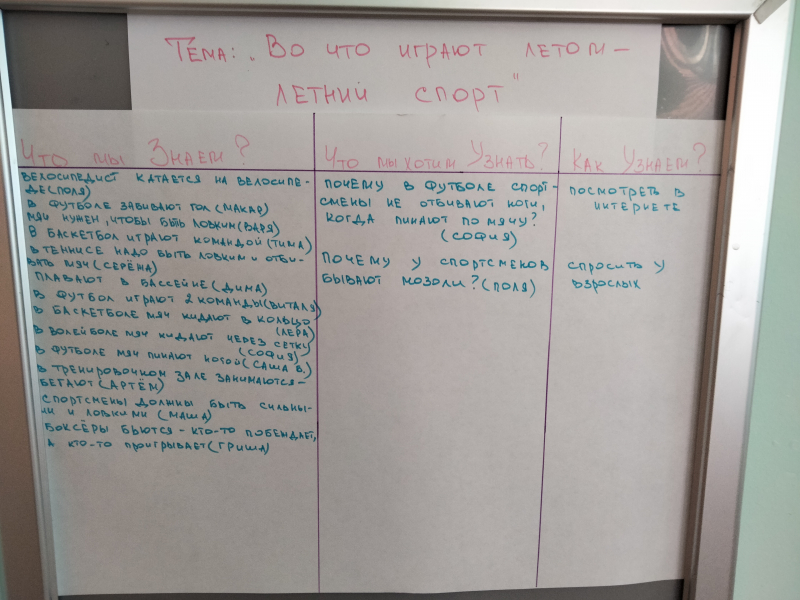 Тема: „Во что играют летом –
летний спорт"
Что мы Знаем?
ВЕЛОСИПЕДИСТ КАТАЕТСЯ НА ВЕЛОСИПЕ-
ДЕ(ПОЛЯ)
В ФУТБОЛЕ ЗАБИВАЮТ ГОЛ (МАКАР)
МЯЧ НУЖЕН, ЧТОБЫ БЫТЬ ЛОВКИМ(ВАРЯ)
В БАСКЕТБОЛ ИГРАЮТ КОМАНДОЙ(ТИМА)
В ТЕННИСЕ НАДО БЫТЬ ЛОВКИМ И ОТБИ-
ВАТЬ МЯЧ(СЕРЁЖА)
ПЛАВАЮТ В БАССЕЙНЕ(ДИМА)
В ФУТБОЛ ИГРАЮТ 2 КОМАНДЫ(ВИТАЛЯ)
В БАСКЕТБОЛЕ МЯЧ КИДАЮТ В КОЛЬЦО
(ЛЕРА)
В ВОЛЕЙБОЛЕ МЯЧ КИДАЮТ ЧЕРЕЗ СЕТКУ
(СОФИЯ)
В ФУТБОЛЕ МЯЧ ПИНАЮТ НОГОЙ(САША В.)
В ТРЕНИРОВОЧНОМ ЗАЛЕ ЗАНИМАЮТСЯ –
БЕГАЮТ(АРТЁМ)
СПОРТСМЕНЫ ДОЛЖНЫ БЫТЬ СИЛЬНЫ-
МИ И ЛОВКИМИ (МАША)
БОКСЁРЫ БЬЮТСЯ - КТО-ТО ПОБЕЖДАЕТ,
А КТО-ТО ПРОИГРЫВАЕТ(ГРИША)
Что мы хотим Узнать?
ПОЧЕМУ В ФУТБОЛЕ СПОРТ-
СМЕНЫ НЕ ОТБИВАЮТ НОГИ,
КОГДА ПИНАЮТ ПО МЯЧУ?
(СОФИЯ)
ПОЧЕМУ У СПОРТСМЕНОВ
БЫВАЮТ МОЗОЛИ?(ПОЛЯ)
Как Узнаем?
ПОСМОТРЕТЬ В
ИНТЕРНЕТЕ
СПРОСИТЬ У
ВЗРОСЛЫХ